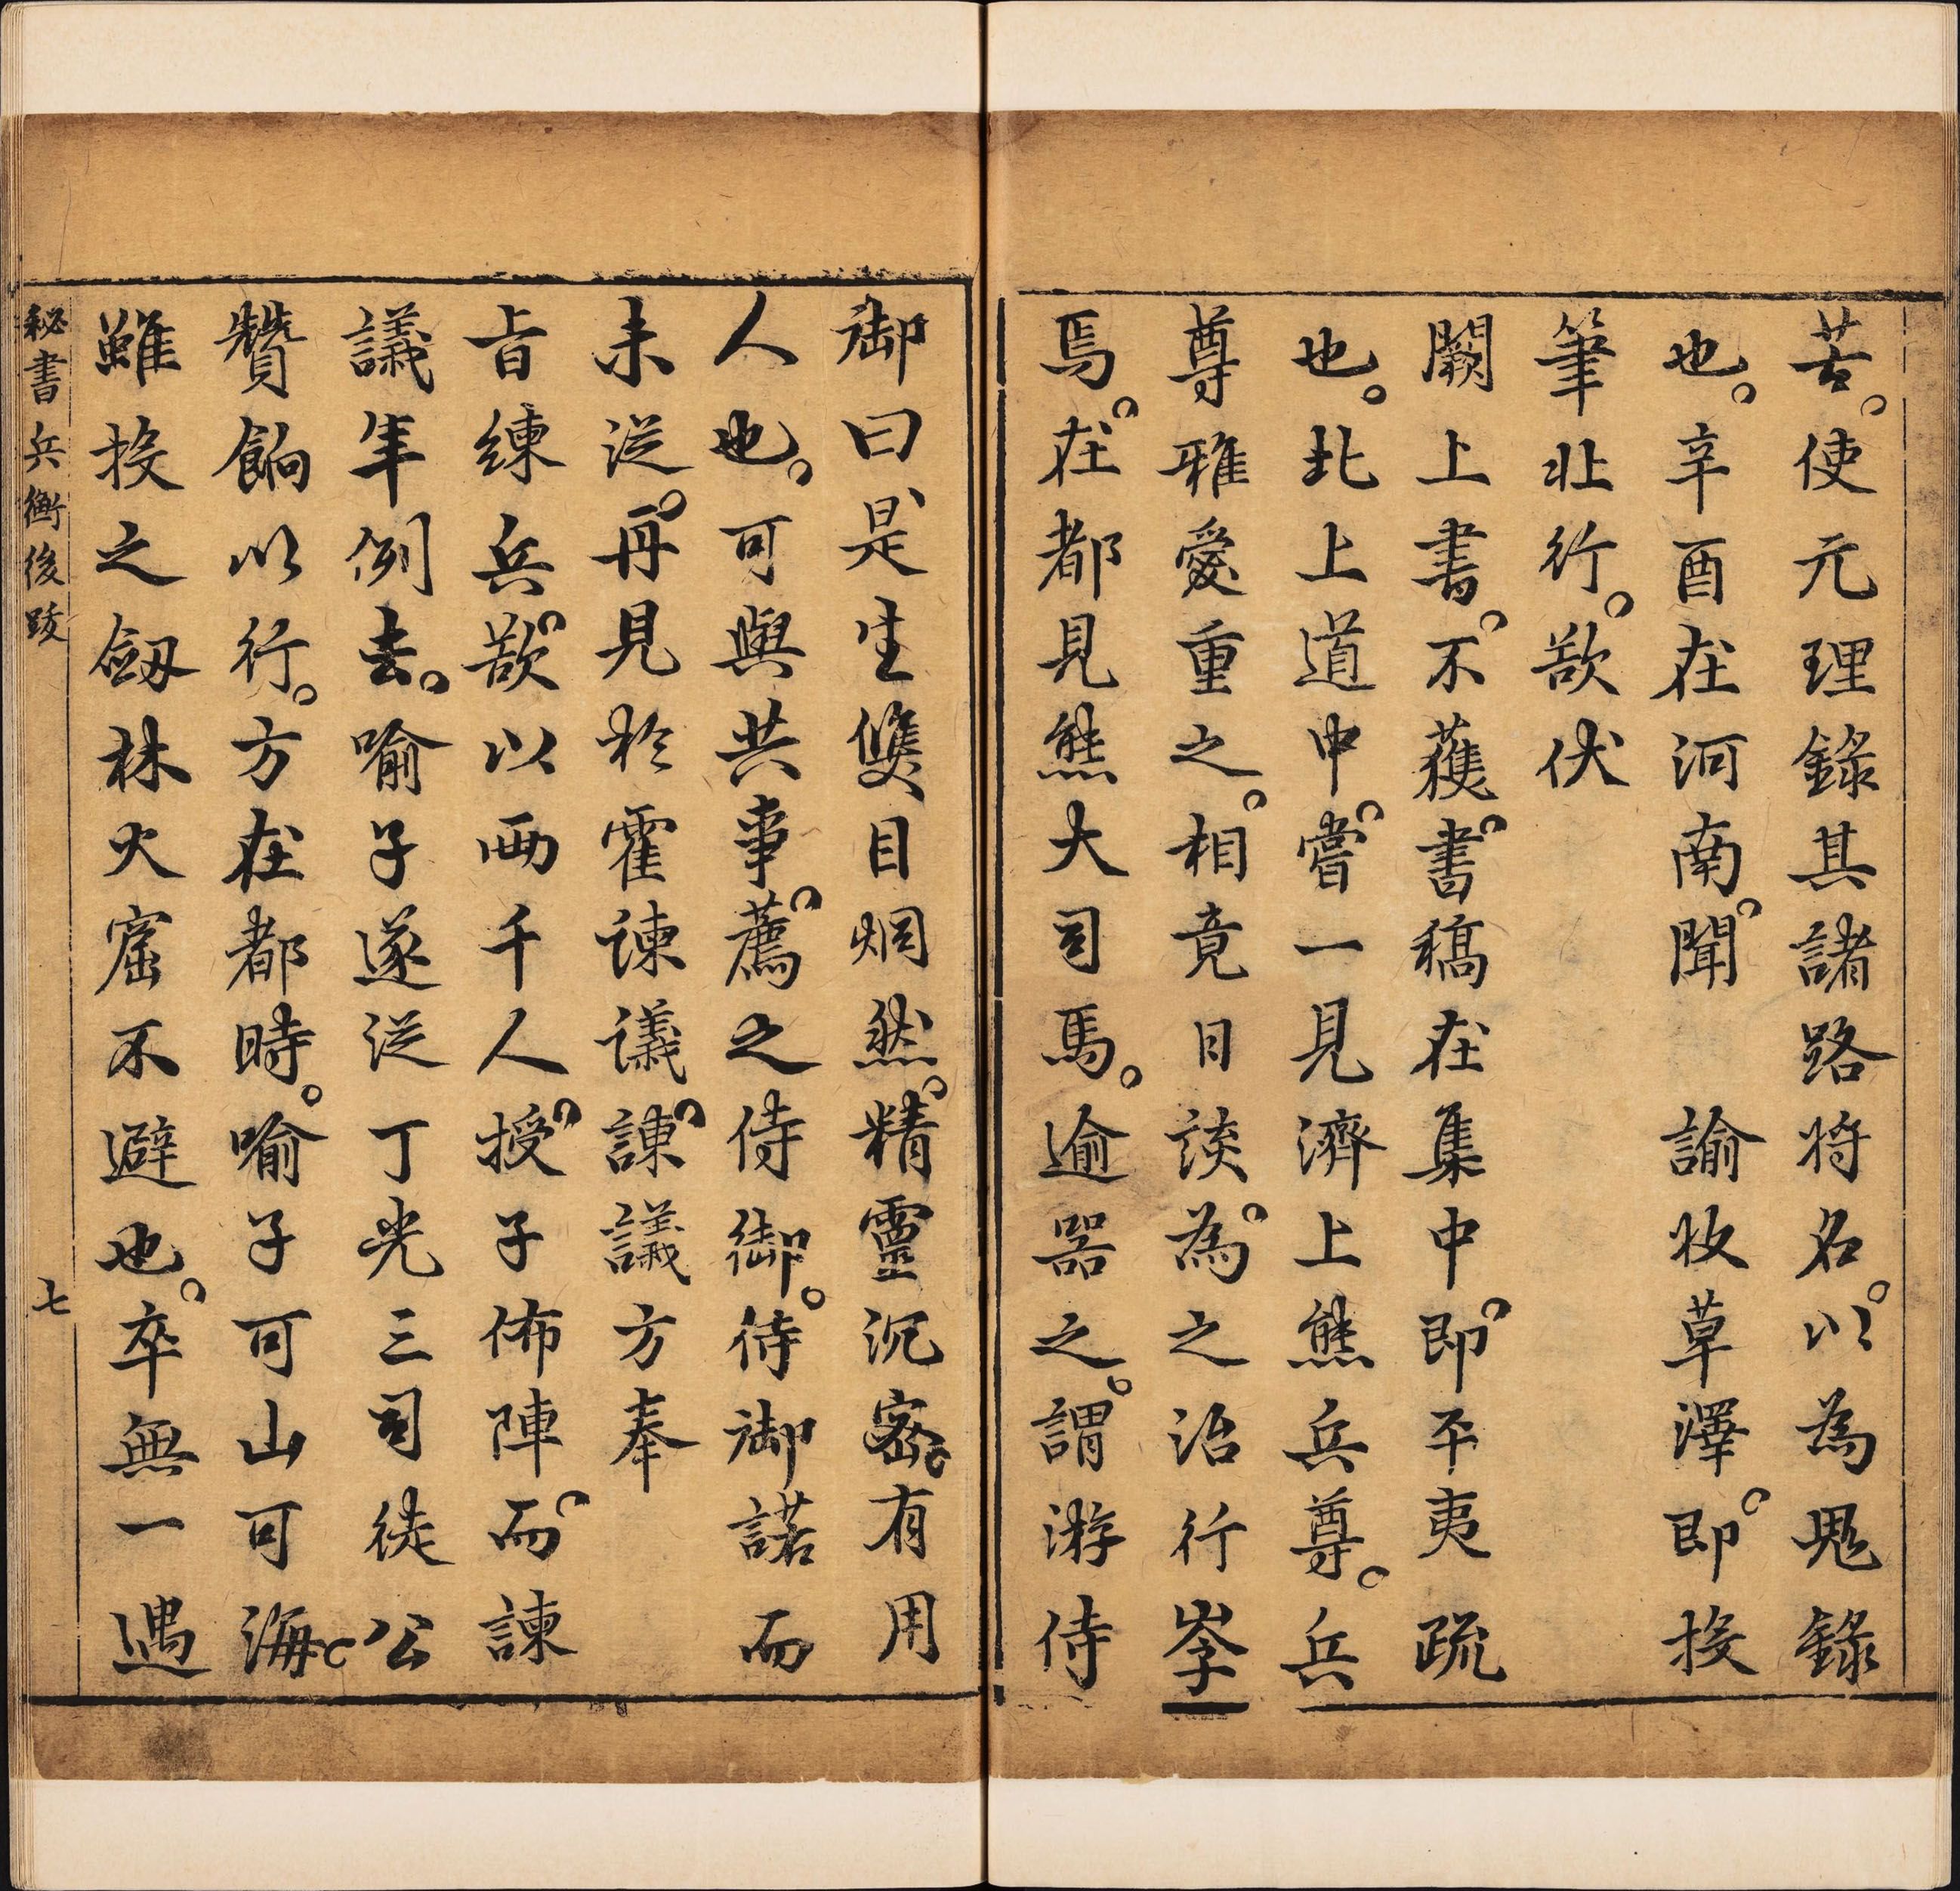 苦。使元理錄其諸路将名。以為鬼錄
也。辛酉在河南。聞　諭牧草澤。即投
筆北行。欲伏
闕上書。不獲。書稿在集中。即平夷疏
也。北上道中。嘗一見濟上熊兵尊。兵
尊雅愛重之。相竟日談。為之治行李
焉。在都見熊大司馬。逾器之。謂游侍
御曰是生雙目烱然。精靈沉密。有用
人也。可與共事。薦之侍御。侍御諾而
未從。再見於霍諫議。諫議方奉
旨練兵。欲以兩千人授。子佈陣。而諫
議年例去。喻子遂從丁光三司徒公
贊餉以行。方在都時。喻子可山可海。
雖投之劒林火窟不避也。卒無一遇
秘書兵衡後跋
七